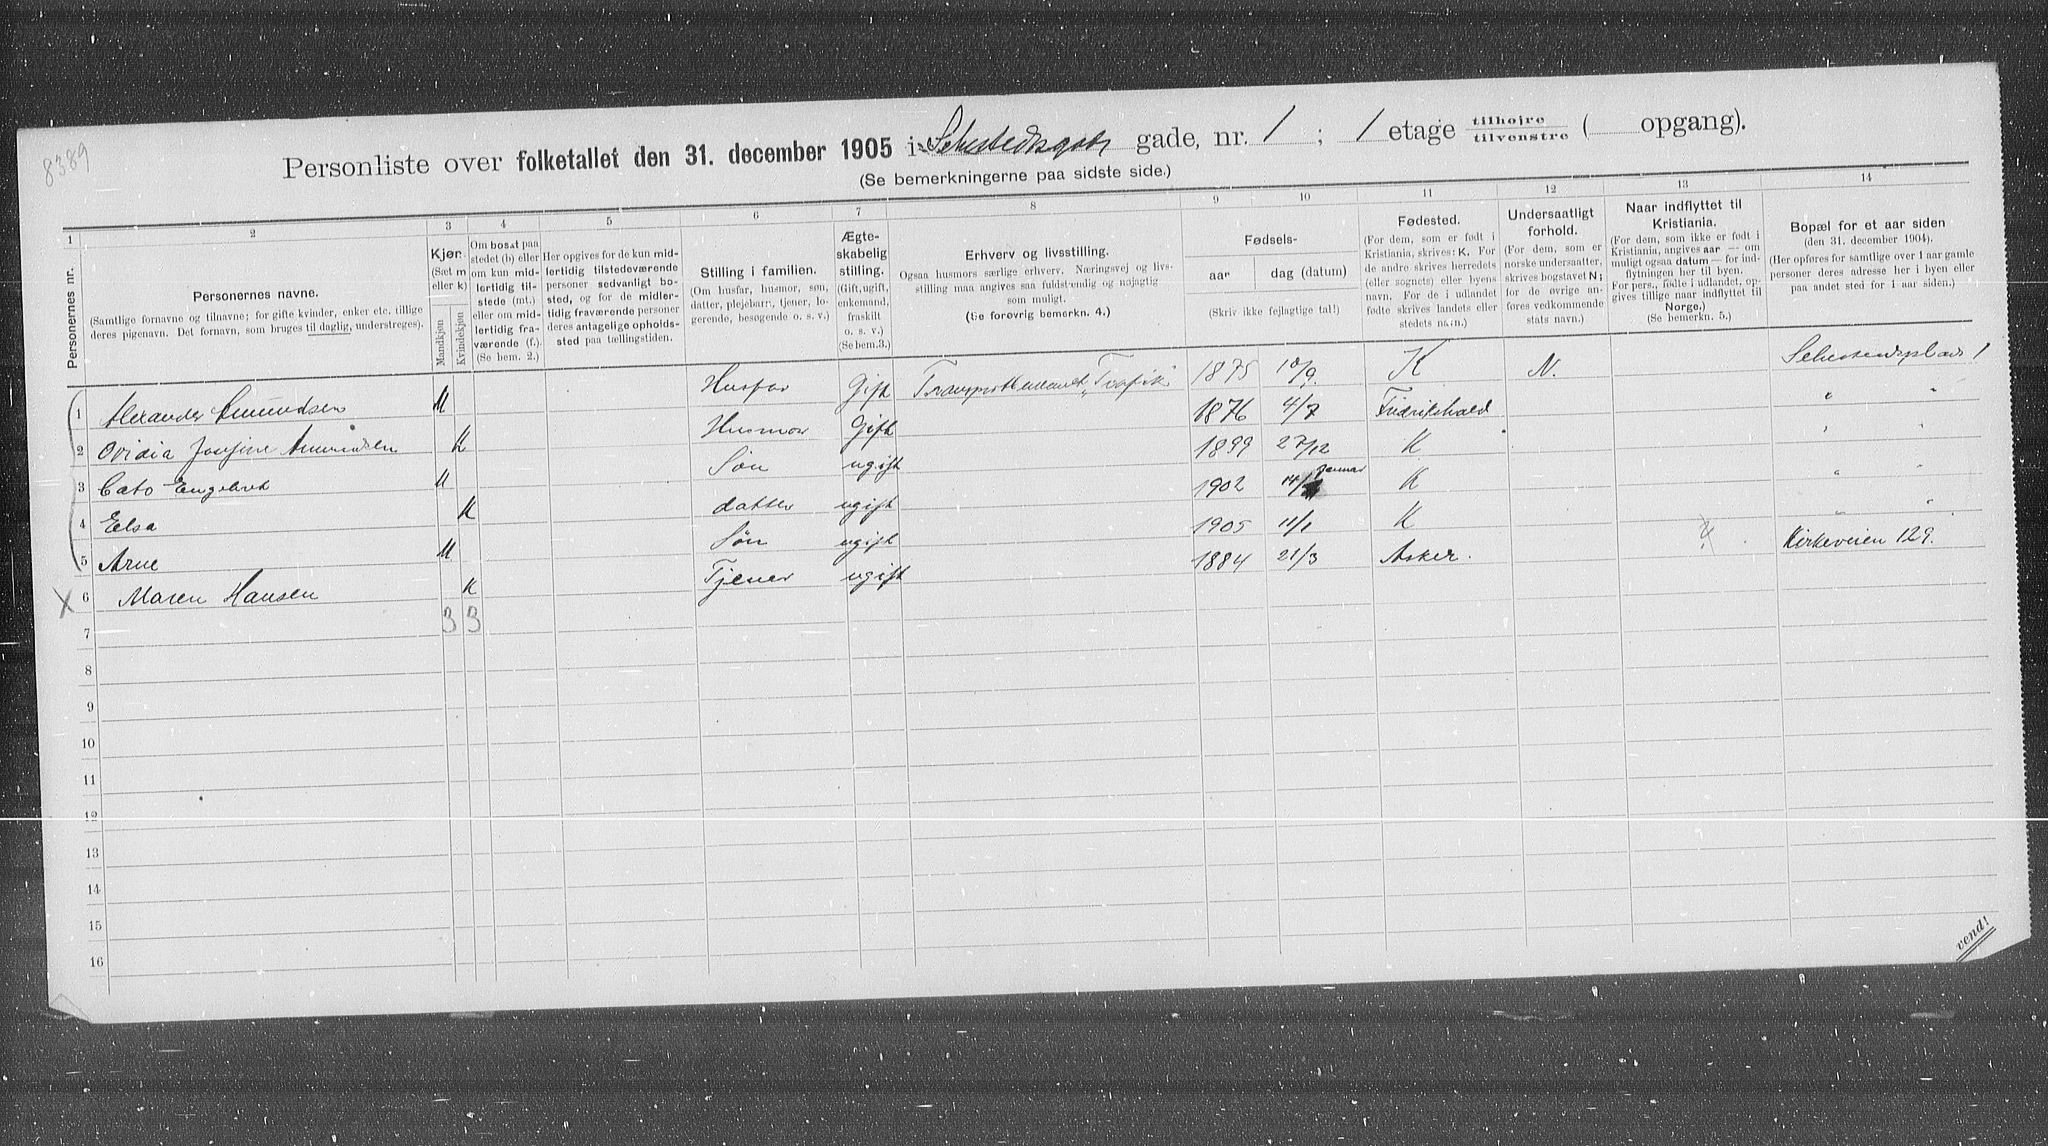 8389
Personliste over folketallet den 31. december 1905 i Sehestedsgade gade, nr. 1 ; 1 etage tilhøjre tilvenstre ( opgang).
(Se bemerkningerne paa sidste side.)
1 2 3 4 5 6 7 8 9 10 11 12 13 14
Personernes nr.
Personernes navne.
(Samtlige fornavne og tilnavne; for gifte kvinder, enker etc. tillige
deres pigenavn. Det fornavn, som bruges til daglig, understreges).
Kjøn.
(Sæt m
eller k)
Mandkjøn
Kvindekjøn
Om bosat paa
stedet (b) eller
om kun mid-
lertidig til-
stede (mt.)
eller om mid-
lertidig fra-
værende (f.)
(Se bem. 2.)
Her opgives for de kun mid-
lertidig tilstedeværende
personer sedvanlig bo-
sted, og for de midler-
tidig fraværende personer
deres antagelige opholds-
sted paa tællingstiden.
Stilling i familien.
(Om husfar, husmor, søn,
datter, plejebarn, tjener, lo-
gerende, besøgende o. s. v.)
Ægte-
skabelig
stilling.
(Gift, ugift,
enkemand,
fraskilt
o. s. v.)
(Se bem.3.)
Erhverv og livsstilling.
Ogsaa husmors særlige erhverv. Næringsvej og livs-
stilling maa angives saa fuldstændig og nøjagtig
som muligt.
(Se forøvrig bemerkn. 4.)
Fødsels-
aar
dag (datum)
(Skriv ikke fejlagtige tal!)
Fødested.
(For dem, som er født i
Kristiania, skrives: K. For
de andre skrives herredets
(eller sognets) eller byens
navn. For de i udlandet
fødte skrives landets eller
stedets navn.)
Undersaatligt
forhold.
(For dem, som er
norske undersaatter,
skrives bogstavet N;
for de øvrige an-
føres vedkommende
stats navn.)
Naar indflyttet til
Kristiania.
(For dem, som ikke er født i
Kristiania, angives aar — om
muligt ogsaa datum — for ind-
flytningen her til byen.
For pers., fødte i udlandet, op-
gives tillige naar indflyttet til
Norge.)
(Se bemerkn. 5.)
Bopæl for et aar siden
(den 31. december 1904).
(Her opføres for samtlige over 1 aar gamle
personer deres adresse her i byen eller
paa andet sted for 1 aar siden.)
1 Alexander Amundsen M Husfar Gift 1875 10/9. K N. 1
2 Ovidia Josefine Amundsen K Husmor Gift 1876 4/7 Fredrikshald " "
3 Cato Engebret M Søn ugift 1899 27/12 K " "
4 Elsa K datter ugift 1902 14/ Januar K " "
5 Arne M Søn ugift 1905 11/1 K " "
X 6 Maren Hansen K Tjener ugift 1884 21/3 Asker. Kirkeveien 129.
3 3
7
8
9
10
11
12
13
14
15
16
vend!